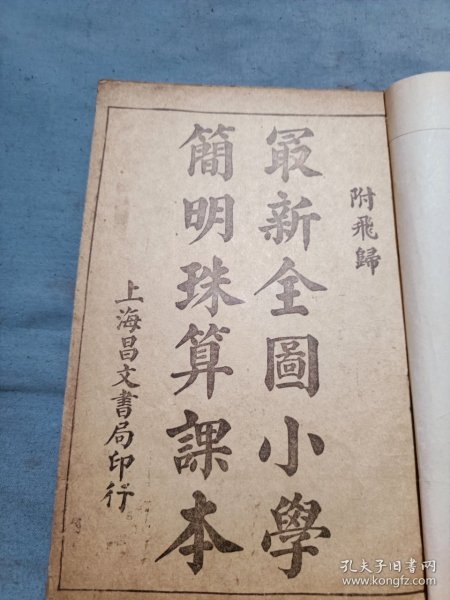 附飛歸
冣新全圖小學
簡明珠算課本
上海昌文書局印行
孔夫子旧书网
www.kongfz.com